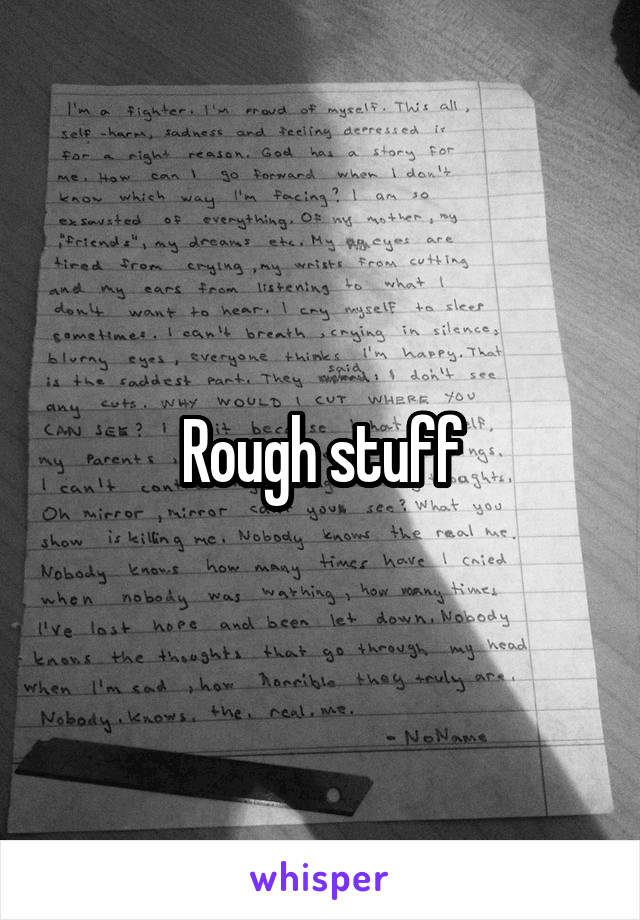 I'm a fighter. I'm proud of myself. This all,
self-harm, sadness and feeling depressed is
for a right reason. God has a story for
me. How can I go forward when I don't
know which way I'm facing? I am so
exsausted of everything. Of my mother, my
"friends", my dreams etc. My eyes are
tired from crying, my wrists from cutting
and my ears from listening to what I
don't want to hear. I cry myself to sleep
sometimes. I can't breath, crying in silence,
blurny eyes, everyone thinks I'm happy. That
is the saddest part. They said: I don't see
any cuts. WHY WOULD I CUT WHERE YOU
CAN SEE? I it because hat
my parents ngs.
Rough stuff
I can't
Oh mirror, mirror see? What you
show is killing me. Nobody knows the real me.
Nobody knows how many times have I cried
when nobody was wathing, how many times
I've lost hope and been let down. Nobody
knows the thoughts that go through my head
when I'm sad, how horrible they truly are.
Nobody. knows. the. real. me.
- NoName
whisper